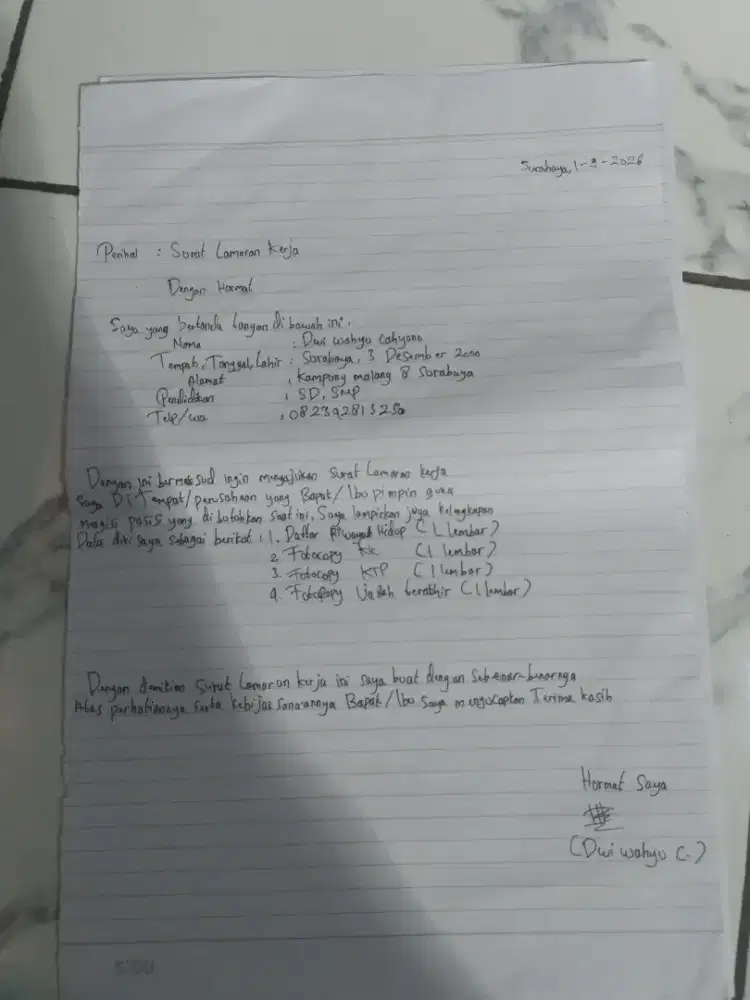 Surabaya, 1-3-2026
Perihal : Surat Lamaran kerja
Dengan Hormat
Saya yang bertanda tangan di bawah ini.
Nama : Dwi wahyu cahyono
Tempah, Tanggal, Lahir : Surabaya, 3 Desember 2000
Alamat : Kampung malang 8 Surabaya
Pendidikan : SD, SMP
Telp/wa :
Dengan ini bermaksud ingin mengajukan Surat Lamaran kerja
Saya Di Tempat/perusahaan yang Bapak/Ibu pimpin guna
mengisi posisi yang dibutuhkan saat ini, Saya lampirkan juga kelengkapan
Data diri saya sebagai berikut : 1. Daftar Riwayat Hidup (1 Lembar)
2. Fotocopy KK (1 lembar)
3. Fotocopy KTP (1 lembar)
4. Fotocopy Ijazah terakhir (1 lembar)
Dengan demikian Surat Lamaran kerja ini saya buat dengan Sebenar-benarnya
Atas perhatiannya serta kebijaksanaannya Bapak/Ibu Saya mengucapkan Terima kasih
Hormat Saya
(Dwi wahyu C.)